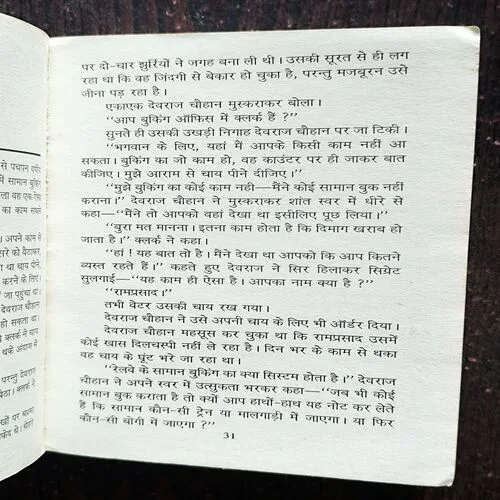 से पचपन वर्षीय
में सामान बुकिंग
ला वह एक ऐसा
का काम सबसे
अपने काम से
सरे को बैठाकर,
था चाय पीने,
करने के लिए।
जा पहुंचा था।
देवराज चौहान
हो सकता था।
क्लर्क ने चाय
थके अंदाज में
परन्तु देवराज
बैठा। क्लर्क ने
खों पर चश्मा
सफेद थे। चेहरे
पर दो-चार झुर्रियों ने जगह बना ली थी। उसकी सूरत से ही लग
रहा था कि वह जिंदगी से बेकार हो चुका है, परन्तु मजबूरन उसे
जीना पड़ रहा है।
एकाएक देवराज चौहान मुस्कराकर बोला।
“आप बुकिंग ऑफिस में क्लर्क हैं ?”
सुनते ही उसकी उखड़ी निगाह देवराज चौहान पर जा टिकी।
“भगवान के लिए, यहां मैं आपके किसी काम नहीं आ
सकता। बुकिंग का जो काम हो, वह काउंटर पर ही जाकर बात
कीजिए। मुझे आराम से चाय पीने दीजिए।”
“मुझे बुकिंग का कोई काम नही—मैंने कोई सामान बुक नहीं
कराना।” देवराज चौहान ने मुस्कराकर शांत स्वर में धीरे से
कहा—“मैंने तो आपको वहां देखा था इसीलिए पूछ लिया।”
“बुरा मत मानना। इतना काम होता है कि दिमाग खराब हो
जाता है।” क्लर्क ने कहा।
“हां ! यह बात तो है। मैंने देखा था आपको कि आप कितने
व्यस्त रहते हैं।” कहते हुए देवराज ने सिर हिलाकर सिग्रेट
सुलगाई—“यह काम ही ऐसा है। आपका नाम क्या है ?”
“रामप्रसाद।”
तभी वेटर उसकी चाय रख गया।
देवराज चौहान ने उसे अपनी चाय के लिए भी ऑर्डर दिया।
देवराज चौहान महसूस कर चुका था कि रामप्रसाद उसमें
कोई खास दिलचस्पी नहीं ले रहा है। दिन भर के काम से थका
वह चाय के घूंट भरे जा रहा था।
“रेलवे के सामान बुकिंग का क्या सिस्टम होता है।” देवराज
चौहान ने अपने स्वर में उत्सुकता भरकर कहा—“जब भी कोई
सामान बुक कराता है तो क्यों आप हाथों-हाथ यह नोट कर लेते
हैं कि सामान कौन-सी ट्रेन या मालगाड़ी में जाएगा। या फिर
कौन-सी बोगी में जाएगा ?”
31